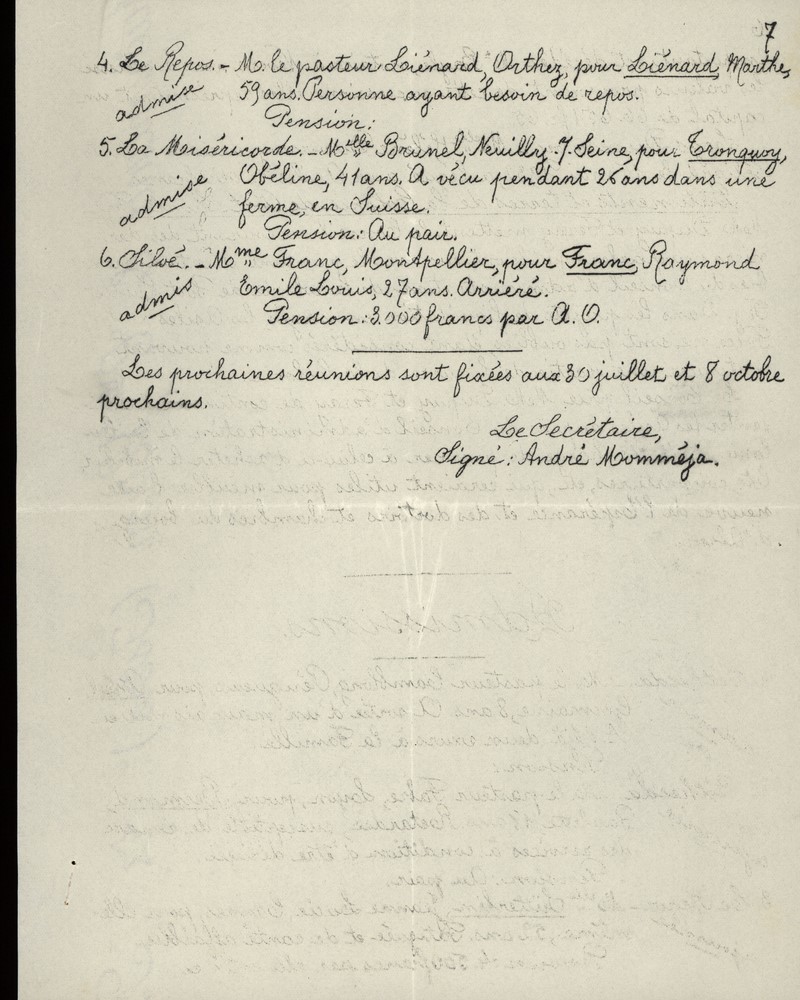 7
4. Le Repos. - M. le pasteur Liénard, Orthez, pour Liénard, Marthe,
admise 59 ans. Personne ayant besoin de repos.
Pension:
5. La Miséricorde. - Mlle Brunel, Neuilly s. Seine, pour Tronquoy,
admise Obéline, 41 ans. A vécu pendant 26 ans dans une
ferme, en Suisse.
Pension: Au pair.
6. Siloé. - Mme Franc, Montpellier, pour Franc, Raymond
admis Emile Louis, 27 ans. Arriéré.
Pension: 3.000 francs par A. O.
Les prochaines réunions sont fixées aux 30 juillet et 8 octobre
prochains.
Le Secrétaire,
Signé: André Momméja.